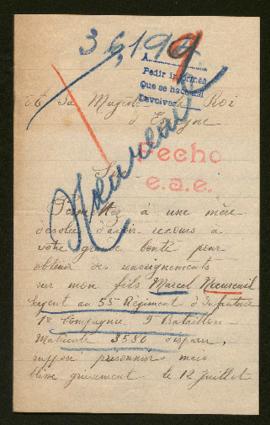 36,197
A
Pedir informes
Que se ha
Devolver
A Sa Majesté le Roi
d'Espagne
Hecho
e.a.e.
Sire
Permettez à une mère
désolée d'avoir recours à
votre grande bonté pour
obtenir des renseignements
sur mon fils Marcel Mereuil
sergent au 55e Régiment d'Infanterie
1e Compagnie 9 Bataillon
Matricule 3536 disparu,
supposé prisonnier mais
blessé grièvement le 12 Juillet